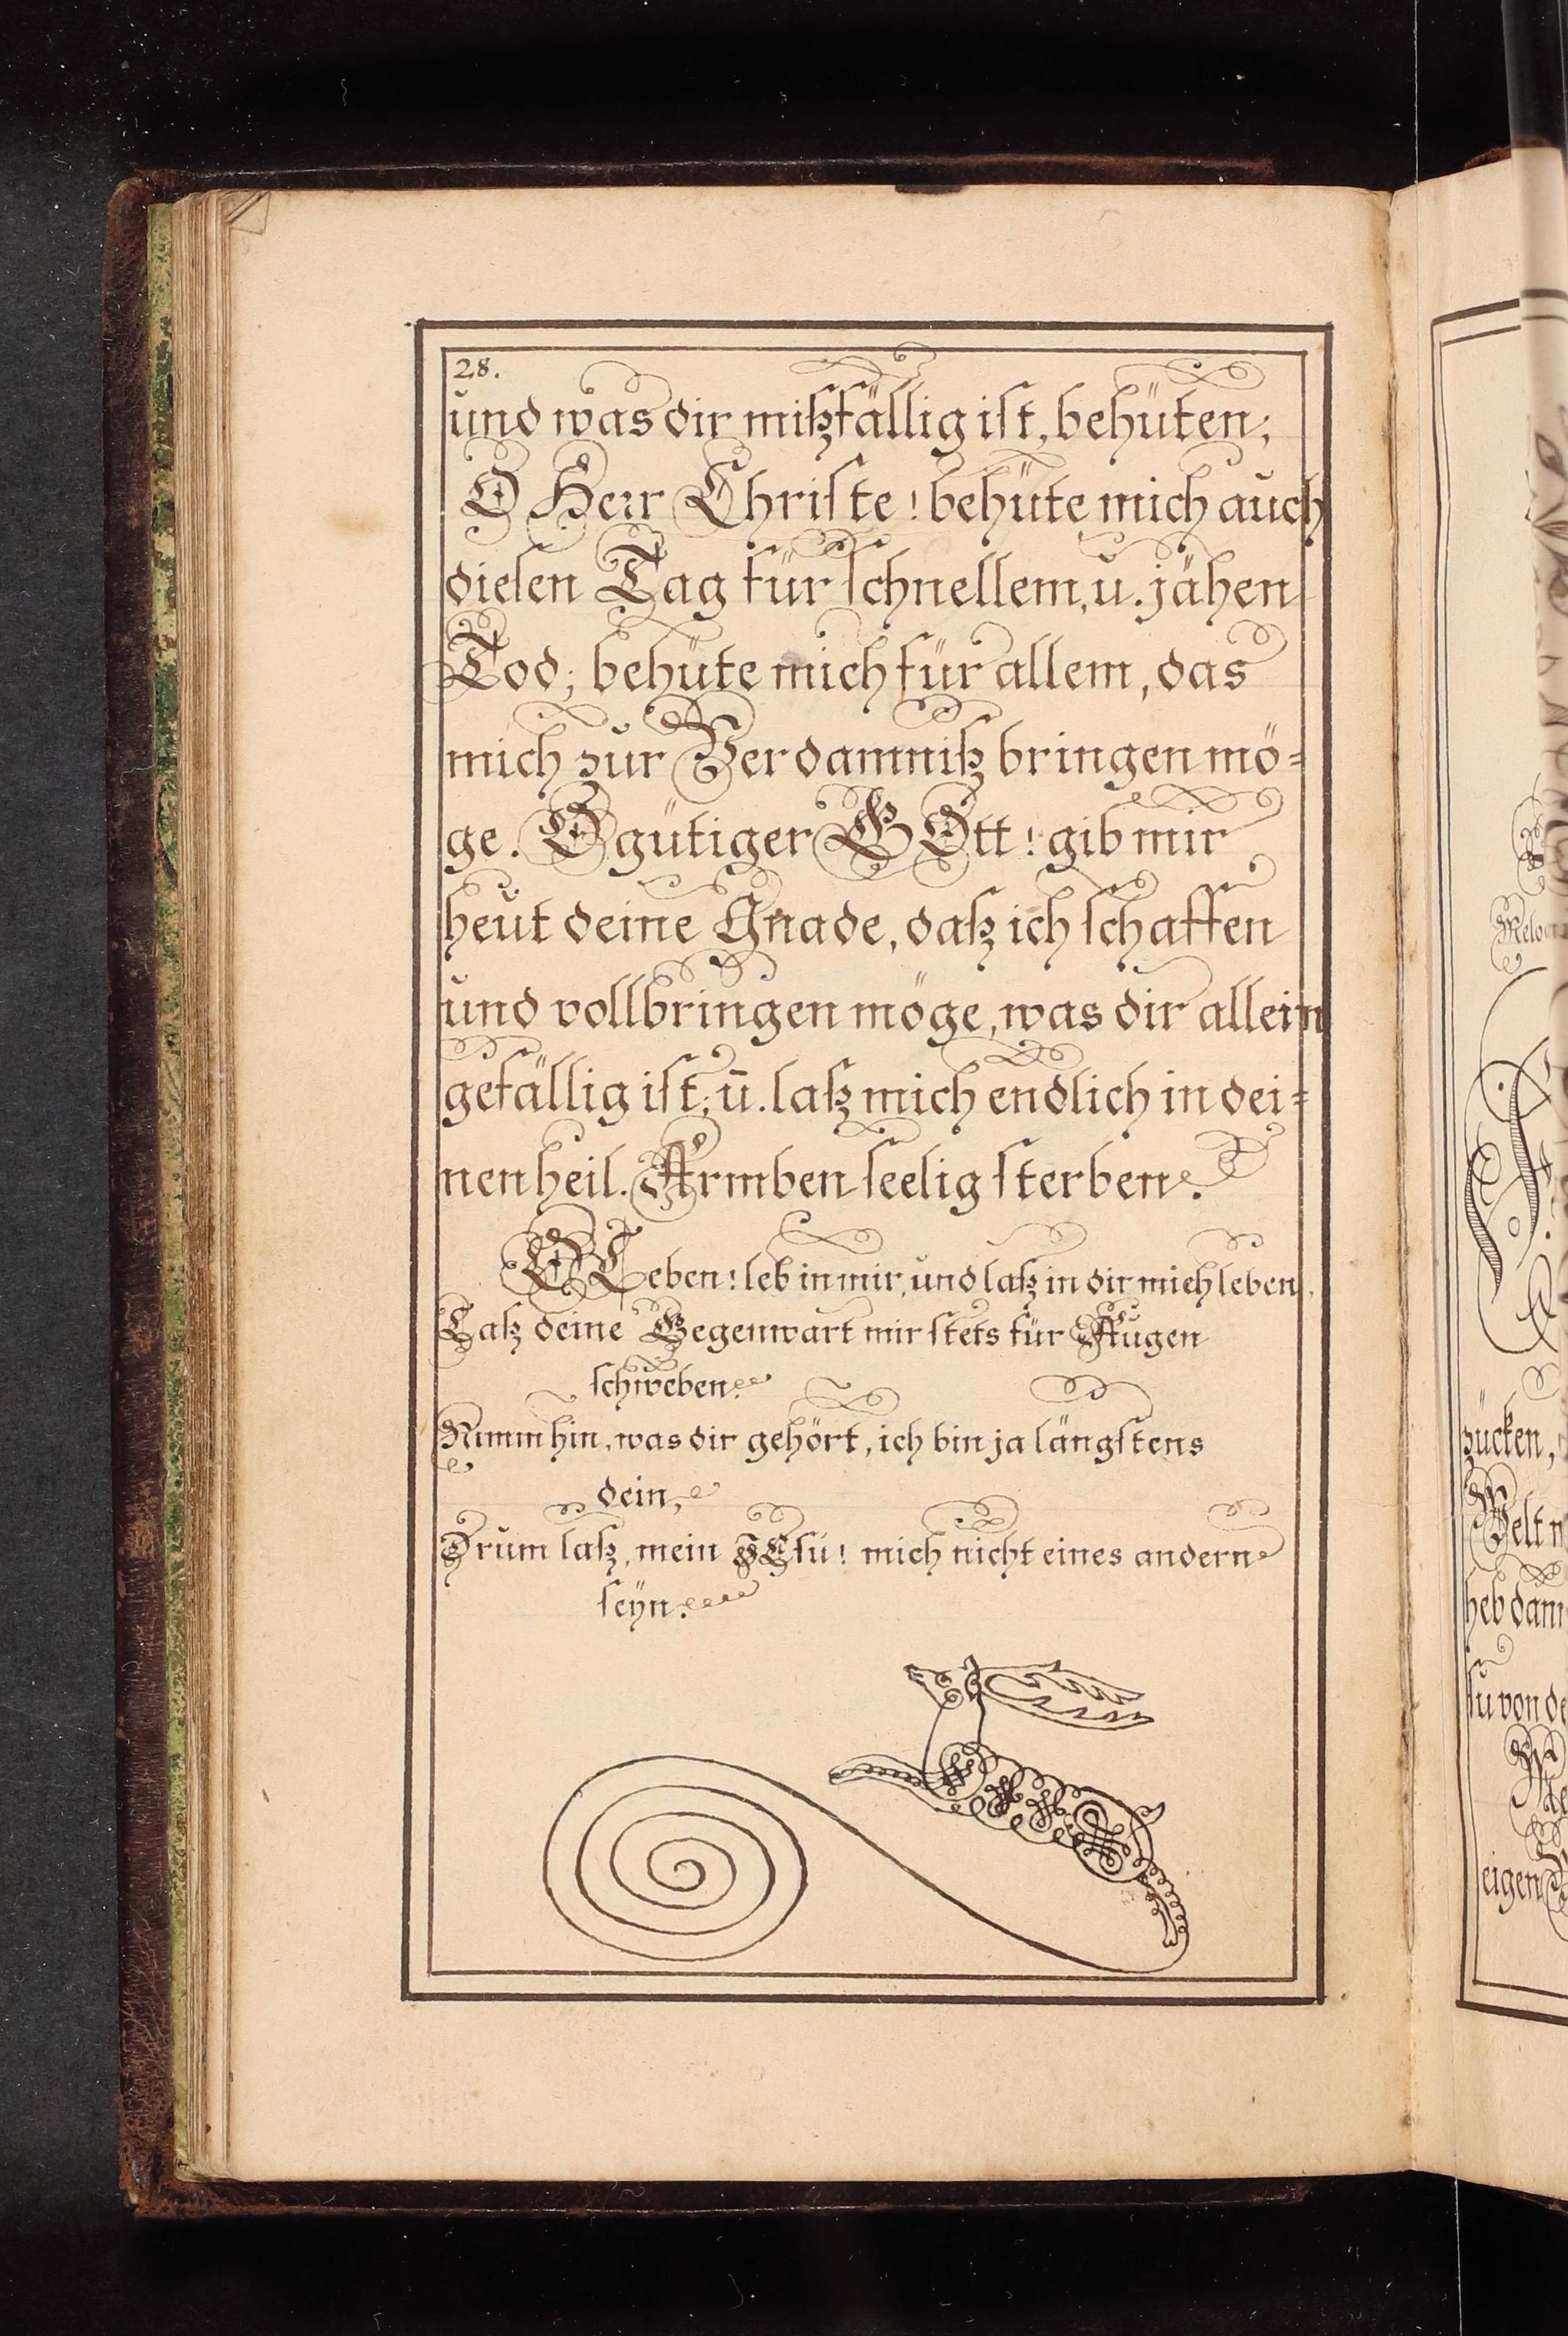 28.
und was dir mißfällig ist, behüten;
O Herr Christe! behüte mich auch
diesen Tag für schnellem, u. jähen
Tod; behüte mich für allem, das
mich zur Verdamniß bringen mö=
ge. O gütiger GOtt! gib mir
heut deine Gnade, daß ich schaffen
und vollbringen möge, was dir allein
gefällig ist; ū. laß mich endlich in dei=
nen heil. Armben seelig sterben.
O Leben! leb in mir, und laß in dir mich leben,
Laß deine Gegenwart mir stets für Augen
schweben.
Nimm hin, was dir gehört, ich bin ja längstens
dein,
Drum laß, mein JEsu! mich nicht eines andern
seyn.
zücken,
Welt
heb
su von
eigen